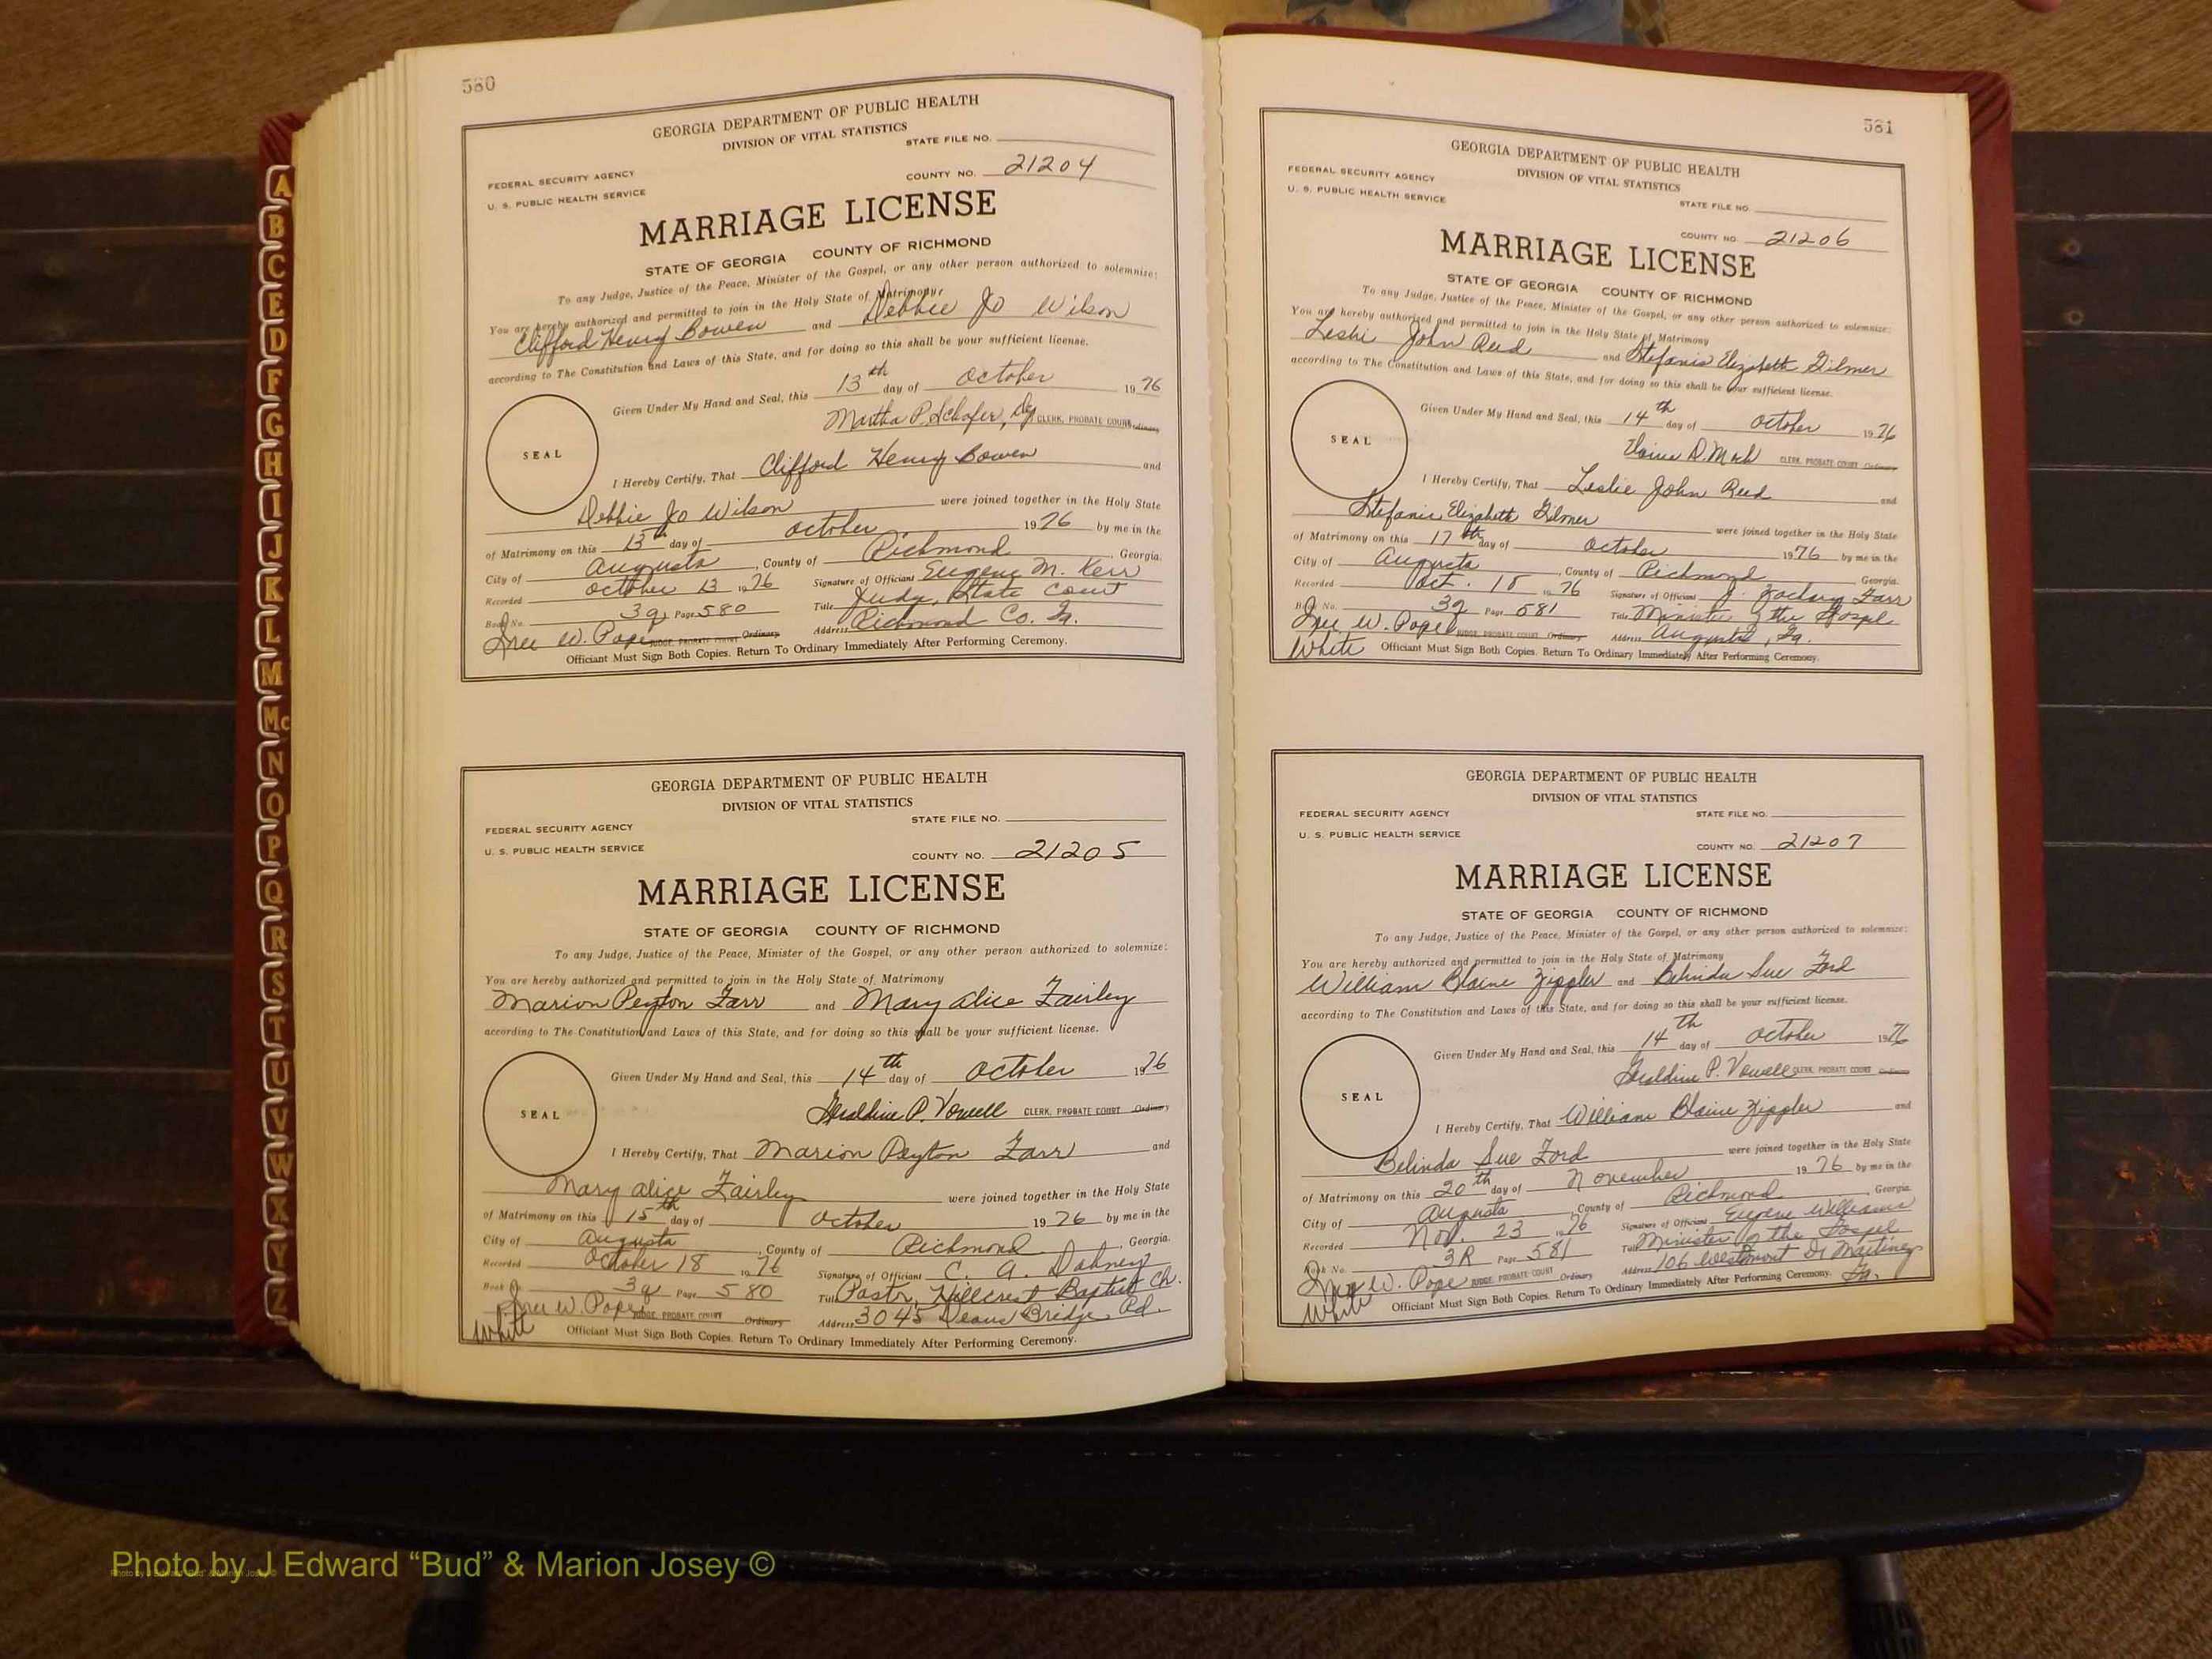 580
GEORGIA DEPARTMENT OF PUBLIC HEALTH
DIVISION OF VITAL STATISTICS
STATE FILE NO.
FEDERAL SECURITY AGENCY
COUNTY NO. 21204
U. S. PUBLIC HEALTH SERVICE
MARRIAGE LICENSE
STATE OF GEORGIA COUNTY OF RICHMOND
To any Judge, Justice of the Peace, Minister of the Gospel, or any other person authorized to solemnize:
You are hereby authorized and permitted to join in the Holy State of Matrimony
Clifford Henry Bowen and Debbie Jo Wilson
according to The Constitution and Laws of this State, and for doing so this shall be your sufficient license.
Given Under My Hand and Seal, this 13th day of October 1976
Martha P. Schafer, Dy. CLERK, PROBATE COURT Ordinary
SEAL
I Hereby Certify, That Clifford Henry Bowen and
Debbie Jo Wilson were joined together in the Holy State
of Matrimony on this 13th day of October 1976 by me in the
City of Augusta, County of Richmond, Georgia.
Recorded October 13 1976 Signature of Officiant Eugene M. Kerr
Book No. 3q Page 580 Title Judge, State Court
W. Pope JUDGE, PROBATE COURT Ordinary Address Richmond Co. Ga.
Officiant Must Sign Both Copies. Return To Ordinary Immediately After Performing Ceremony.
GEORGIA DEPARTMENT OF PUBLIC HEALTH
DIVISION OF VITAL STATISTICS
STATE FILE NO.
FEDERAL SECURITY AGENCY
U. S. PUBLIC HEALTH SERVICE
COUNTY NO. 21205
MARRIAGE LICENSE
STATE OF GEORGIA COUNTY OF RICHMOND
To any Judge, Justice of the Peace, Minister of the Gospel, or any other person authorized to solemnize:
You are hereby authorized and permitted to join in the Holy State of Matrimony
Marion Peyton Farr and Mary Alice Fairley
according to The Constitution and Laws of this State, and for doing so this shall be your sufficient license.
Given Under My Hand and Seal, this 14th day of October 1976
Geraldine P. Vowell CLERK, PROBATE COURT Ordinary
SEAL
I Hereby Certify, That Marion Peyton Farr and
Mary Alice Fairley were joined together in the Holy State
of Matrimony on this 15th day of October 1976 by me in the
City of Augusta, County of Richmond, Georgia.
Recorded October 18 1976 Signature of Officiant C. A. Dabney
Book 3q Page 580 Title Pastor, Hillcrest Baptist Ch.
W. Pope JUDGE, PROBATE COURT Ordinary Address 3045 Deans Bridge Rd.
White Officiant Must Sign Both Copies. Return To Ordinary Immediately After Performing Ceremony.
581
GEORGIA DEPARTMENT OF PUBLIC HEALTH
DIVISION OF VITAL STATISTICS
FEDERAL SECURITY AGENCY
U. S. PUBLIC HEALTH SERVICE
STATE FILE NO.
COUNTY NO. 21206
MARRIAGE LICENSE
STATE OF GEORGIA COUNTY OF RICHMOND
To any Judge, Justice of the Peace, Minister of the Gospel, or any other person authorized to solemnize:
You are hereby authorized and permitted to join in the Holy State of Matrimony
Leslie John Reed and Stefanie Elizabeth Gilmer
according to The Constitution and Laws of this State, and for doing so this shall be your sufficient license.
Given Under My Hand and Seal, this 14th day of October 1976
D. CLERK, PROBATE COURT Ordinary
SEAL
I Hereby Certify, That Leslie John Reed and
Stefanie Elizabeth Gilmer were joined together in the Holy State
of Matrimony on this 17th day of October 1976 by me in the
City of Augusta, County of Richmond, Georgia.
Recorded Oct. 18 1976 Signature of Officiant J. Zachary Farr
Book No. 3q Page 581 Title Minister of the Gospel
W. Pope JUDGE, PROBATE COURT Ordinary Address Augusta, Ga.
White Officiant Must Sign Both Copies. Return To Ordinary Immediately After Performing Ceremony.
GEORGIA DEPARTMENT OF PUBLIC HEALTH
DIVISION OF VITAL STATISTICS
FEDERAL SECURITY AGENCY
STATE FILE NO.
U. S. PUBLIC HEALTH SERVICE
COUNTY NO. 21207
MARRIAGE LICENSE
STATE OF GEORGIA COUNTY OF RICHMOND
To any Judge, Justice of the Peace, Minister of the Gospel, or any other person authorized to solemnize:
You are hereby authorized and permitted to join in the Holy State of Matrimony
William Blaine Zippler and Belinda Sue Ford
according to The Constitution and Laws of this State, and for doing so this shall be your sufficient license.
Given Under My Hand and Seal, this 14th day of October 1976
Geraldine P. Vowell CLERK, PROBATE COURT Ordinary
SEAL
I Hereby Certify, That William Blaine Zippler and
Belinda Sue Ford were joined together in the Holy State
of Matrimony on this 20th day of November 1976 by me in the
City of Augusta, County of Richmond, Georgia.
Recorded Nov. 23 1976 Signature of Officiant Eugene Williams
Book No. 3R Page 581 Title Minister of the Gospel
W. Pope JUDGE, PROBATE COURT Ordinary Address 106 Westmont Dr Martinez
White Officiant Must Sign Both Copies. Return To Ordinary Immediately After Performing Ceremony. Ga.
A
B
C
E
D
F
G
H
I
J
K
L
M
Mc
N
O
P
Q
R
S
T
U
V
W
X
Y
Z
Photo by J Edward “Bud” & Marion Josey ©
Photo by J Edward “Bud” & Marion Josey ©